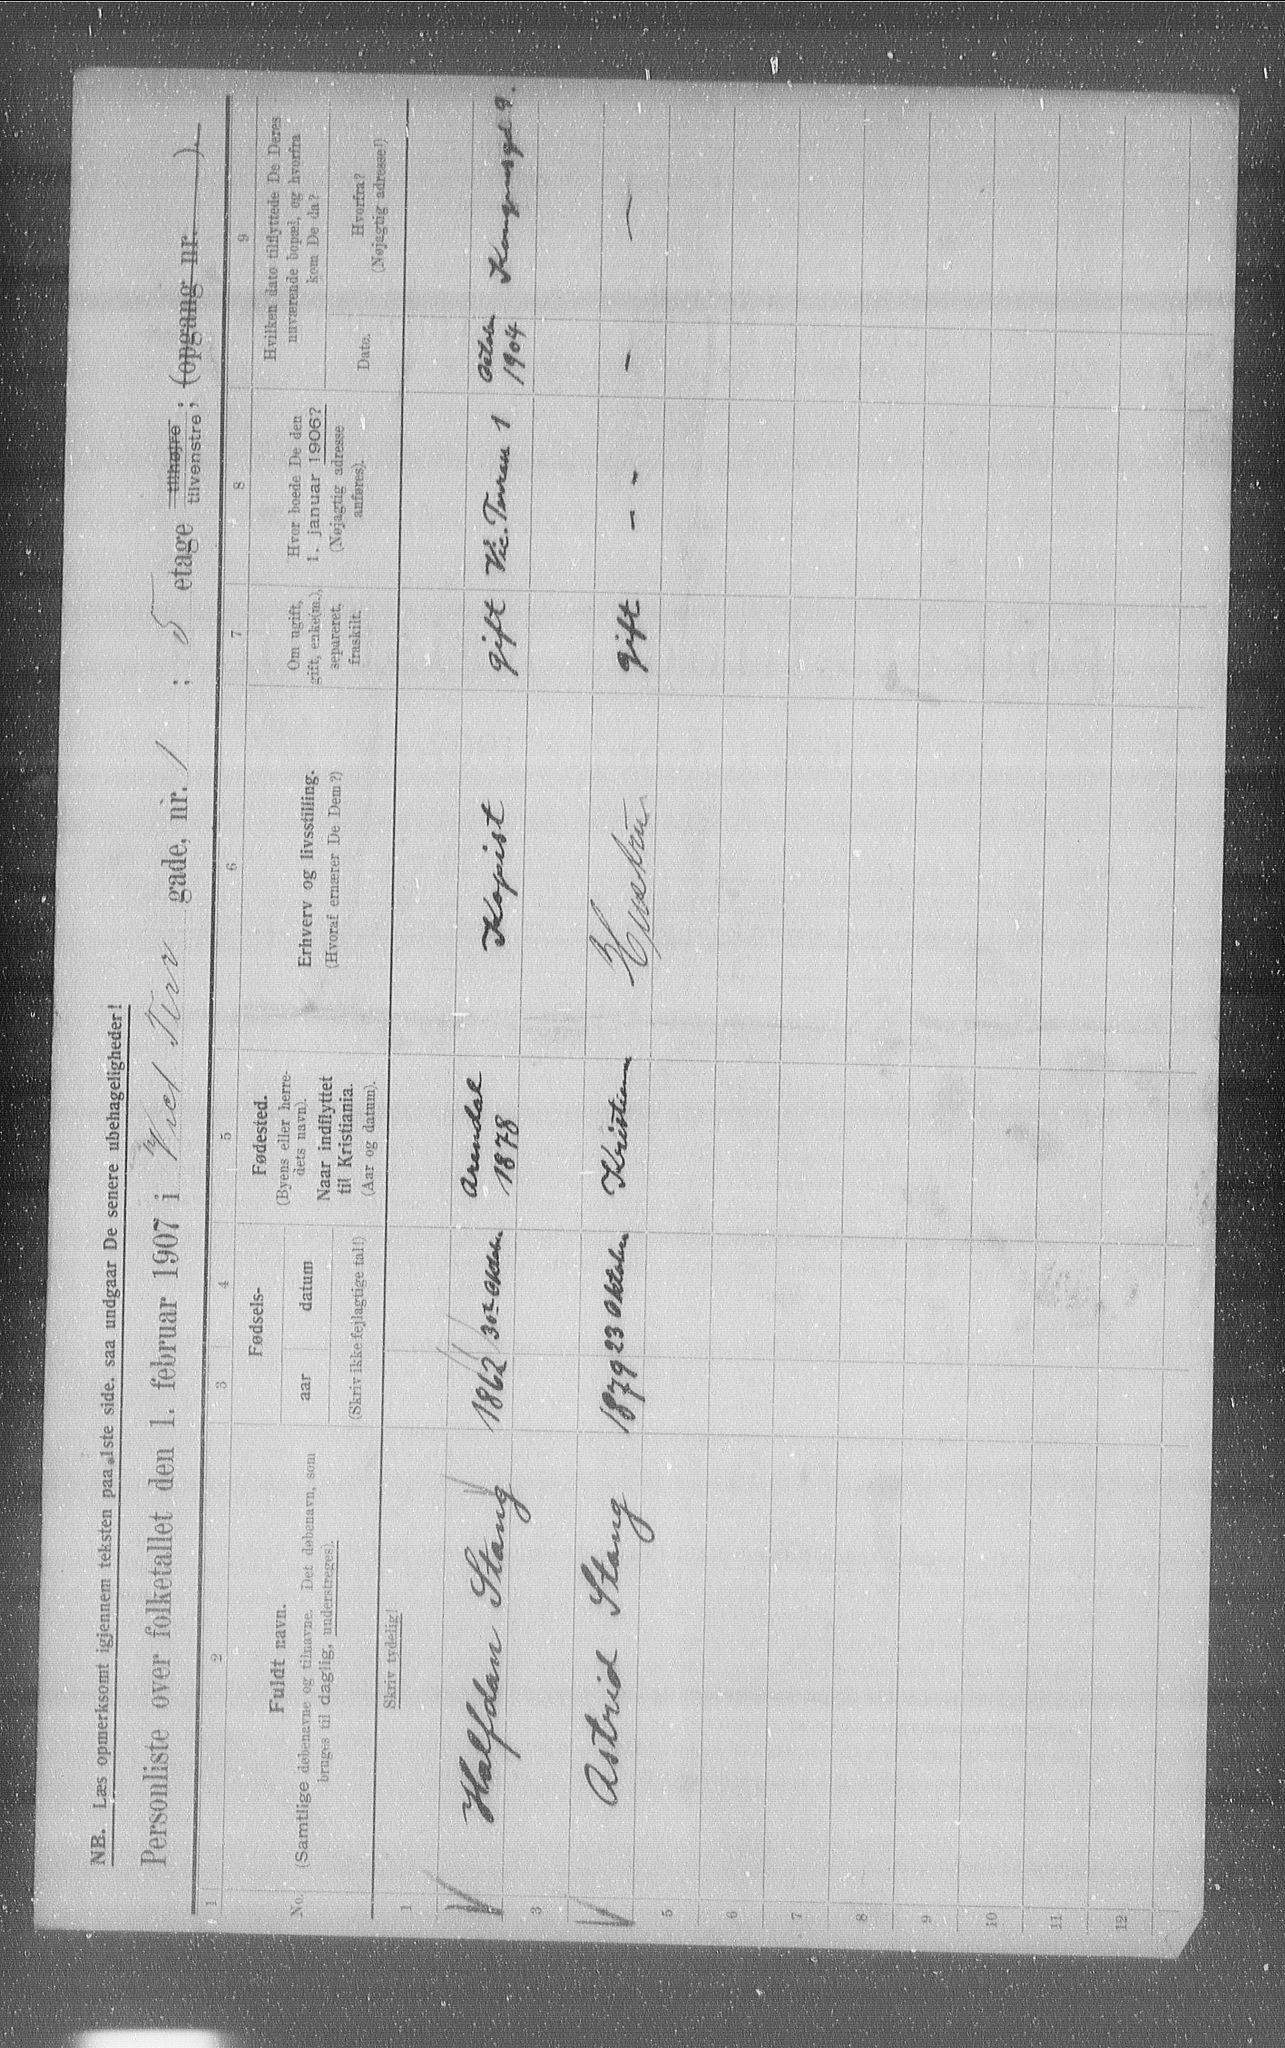 NB. Læs opmerksomt igjennem teksten paa 1ste side, saa undgaar De senere ubehageligheder!
Personliste over folketallet den 1. februar 1907 i Vict Terr gade, nr. 1 ; 5 etage tilhøjre tilvenstre; (opgang nr. ).
1 2 3 4 5 6 7 8 9
No.
Fuldt navn.
(Samtlige døbenavne og tilnavne. Det døbenavn, som
bruges til daglig, understreges).
Skriv tydelig!
Fødsels-
aar datum
(Skriv ikke fejlagtige tal!)
Fødested.
(Byens eller herre-
dets navn).
Naar indflyttet
til Kristiania.
(Aar og datum).
Erhverv og livsstilling.
(Hvoraf ernærer De Dem?)
Om ugift,
gift, enke(m.),
separeret,
fraskilt.
Hvor boede De den
1. januar 1906?
(Nøjagtig adresse
anføres).
Hvilken dato tilflyttede De Deres
nuværende bopæl, og hvorfra
kom De da?
Dato.
Hvorfra?
(Nøjagtig adresse!)
1
Halfdan Stang 1862 30te Oktober Arendal 1878 Kopist gift Vic. Terrass 1 October 1904
3
Astrid Stang 1879 23 Oktober Kristiania Hustru gift - - - —
5
6
7
8
9
10
11
12